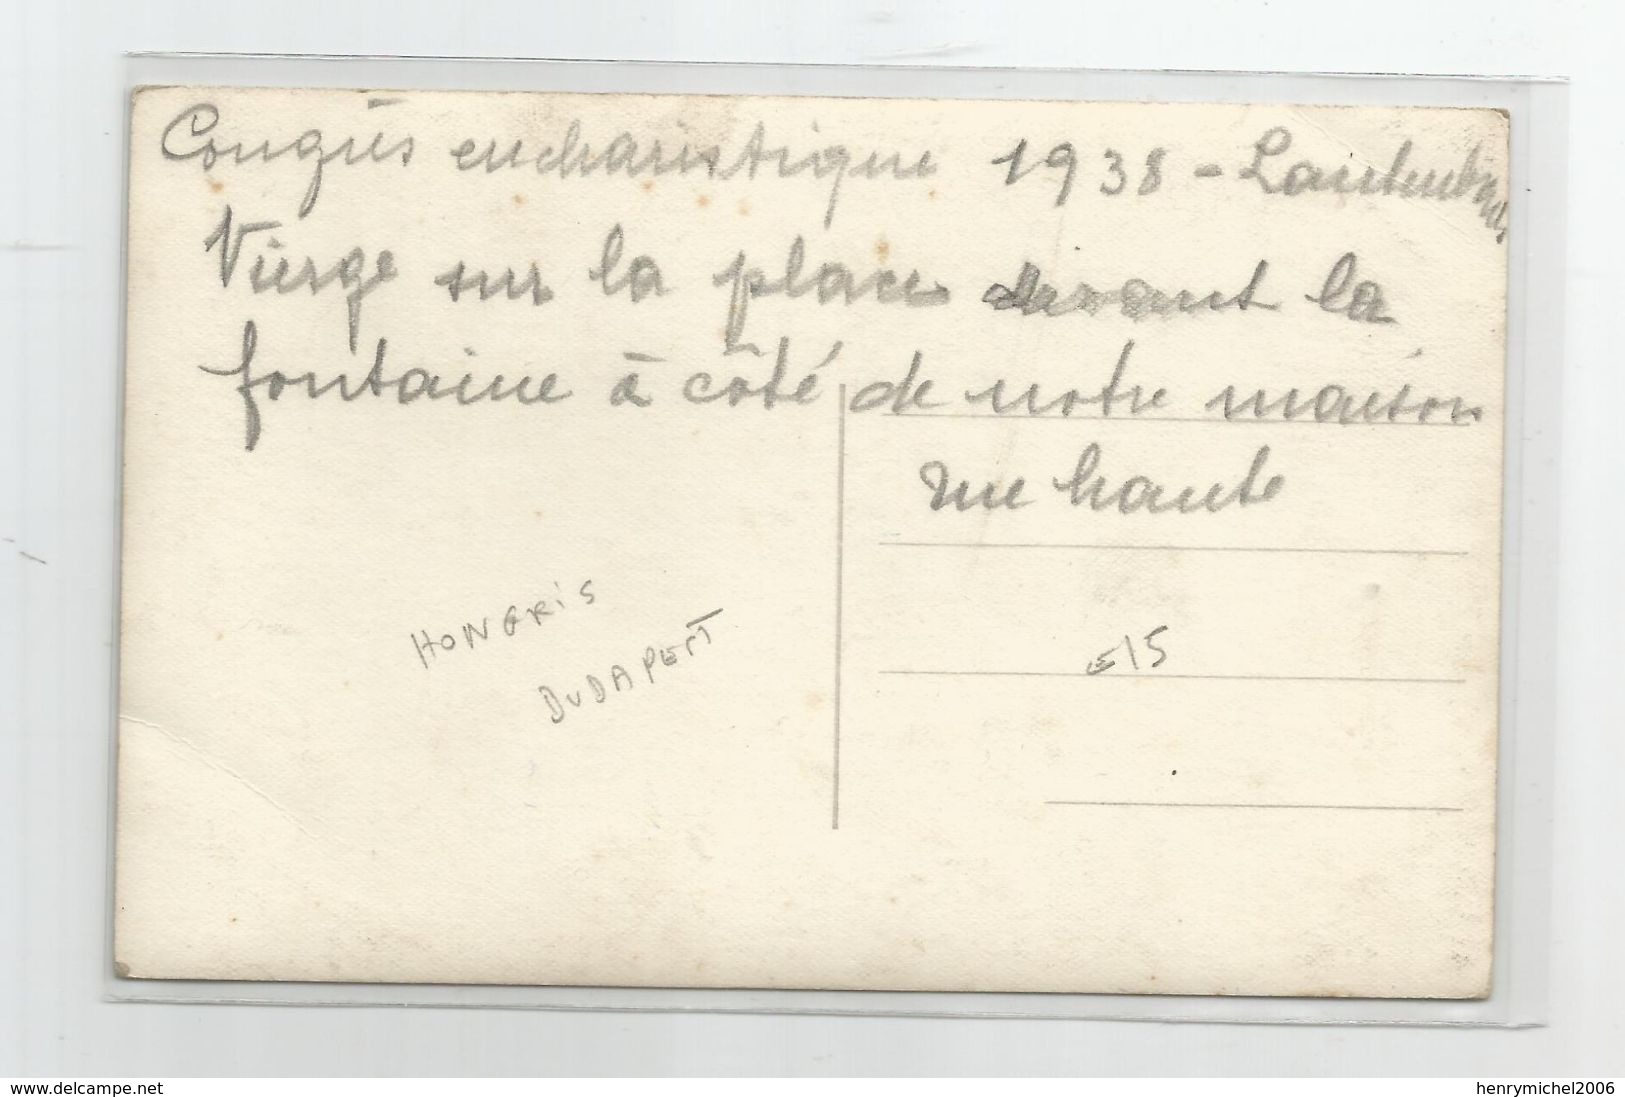 Congrès eucharistique 1938 -
Vierge sur la place devant la
fontaine à côté de notre maison
rue haute
HONGRIS
BUDAPEST
15
www.delcampe.net
henrymichel2006